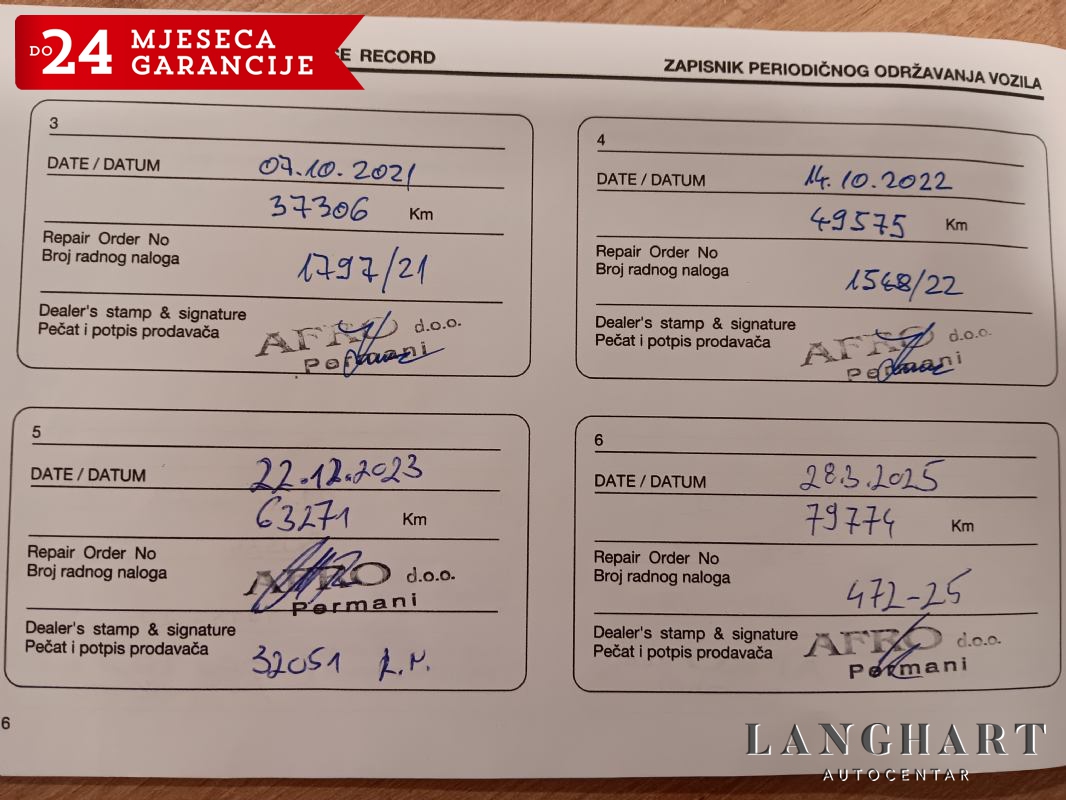 DO 24 MJESECA
GARANCIJE
RECORD
ZAPISNIK PERIODIČNOG ODRŽAVANJA VOZILA
3
DATE / DATUM 07.10.2021
37306 Km
Repair Order No
Broj radnog naloga 1797/21
Dealer's stamp & signature
Pečat i potpis prodavača
AFRO d.o.o.
Permani
4
DATE / DATUM 14.10.2022
49575 Km
Repair Order No
Broj radnog naloga 1548/22
Dealer's stamp & signature
Pečat i potpis prodavača
AFRO d.o.o.
Permani
5
DATE / DATUM 22.12.2023
63271 Km
Repair Order No
Broj radnog naloga
AFRO d.o.o.
Permani
Dealer's stamp & signature
Pečat i potpis prodavača
32051
6
DATE / DATUM 28.3.2025
79774 Km
Repair Order No
Broj radnog naloga
472-25
Dealer's stamp & signature
Pečat i potpis prodavača
AFRO d.o.o.
Permani
6
LANGHART
AUTOCENTAR